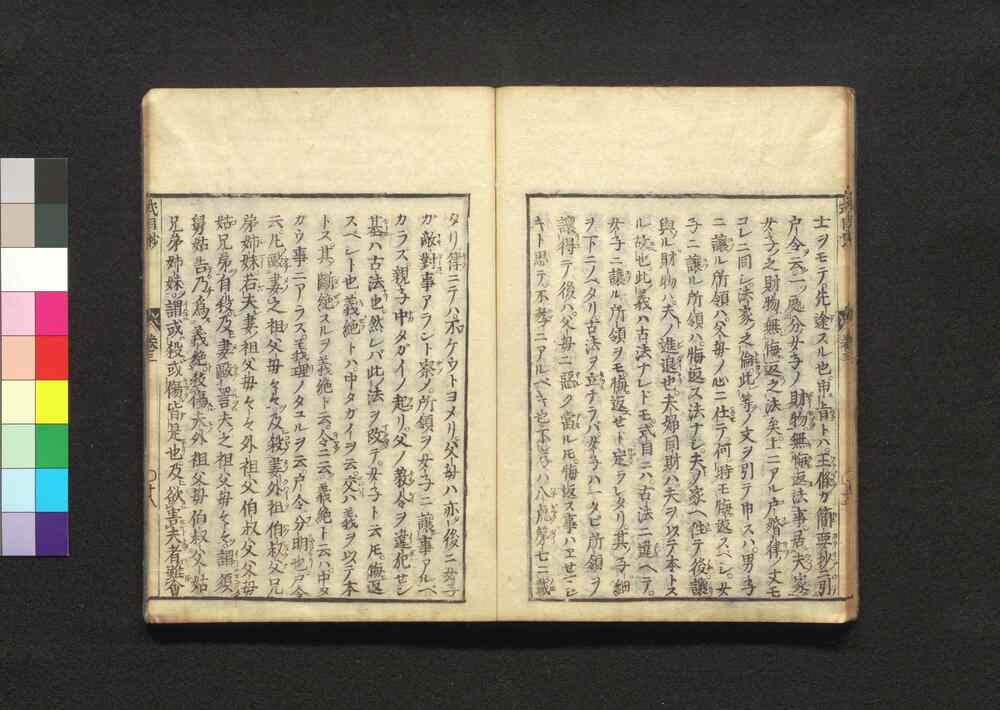 士ヲモテ先途スル也申旨トハ王條ガ簡要抄ニ引
戸令云一處分女子ノ財物無悔返法事居夫家
女子之財物無悔返之法矣上ニアル戸婚律ノ文モ
コレニ同シ法家之倫此等ノ文ヲ引テ申スハ男子
ニ讓ル所領ハ父母ノ心ニ仕テ何時モ悔返スベシ女
子ニ讓ル所領ハ悔返ス法ナシ夫ノ家ヘ住テ後讓
與ル財物ハ夫ノ進退也夫婦同財ハ夫ヲ以テ本トス
ル故也此義ハ古法ナレドモ式目ニハ古法ニ違ヘテ
女子ニ讓ル所領ヲモ悔返セト定ラレタリ其ノ子細
ヲ下ニノベタリ古法ヲ立ナラバ女子ハ一タビ所領ヲ
讓得テ後ハ父母ニ當ルモ悔返ス事ハエセマジ
キト思テ不孝ニアルベキ也不孝ハ八虐第七ニ載
タリ律ニテハ不ケウトヨメリ父母ハ亦後ニ女子
ガ敵對事アラント察ノ所領ヲ女子ニ讓事アルベ
カラス親子中タガイノ起リ父ノ教令ヲ違犯セシ
基ハ古法也然レバ此法ヲ改テ女子ト云ヒ悔返
スベシト也義絶トハ中タガイヲ云交ハ義ヲ以テ本
トス其斷絶スルヲ義絶ト云令ニ云義絶ト云ハ中タ
ガウ事ニアラス義理ノタユルヲ云戸令分明也戸令
云凡毆妻之祖父母々々及殺妻外祖伯叔父兄
弟姉妹若夫妻祖父母々々外祖父伯叔父父母
姑兄弟自殺及妻毆詈夫之祖父母々々謂須
舅姑告乃為義絶殺傷夫外祖父母伯叔父姑
兄弟姉妹謂或殺或傷皆是也及欲害夫者雖會
卷三